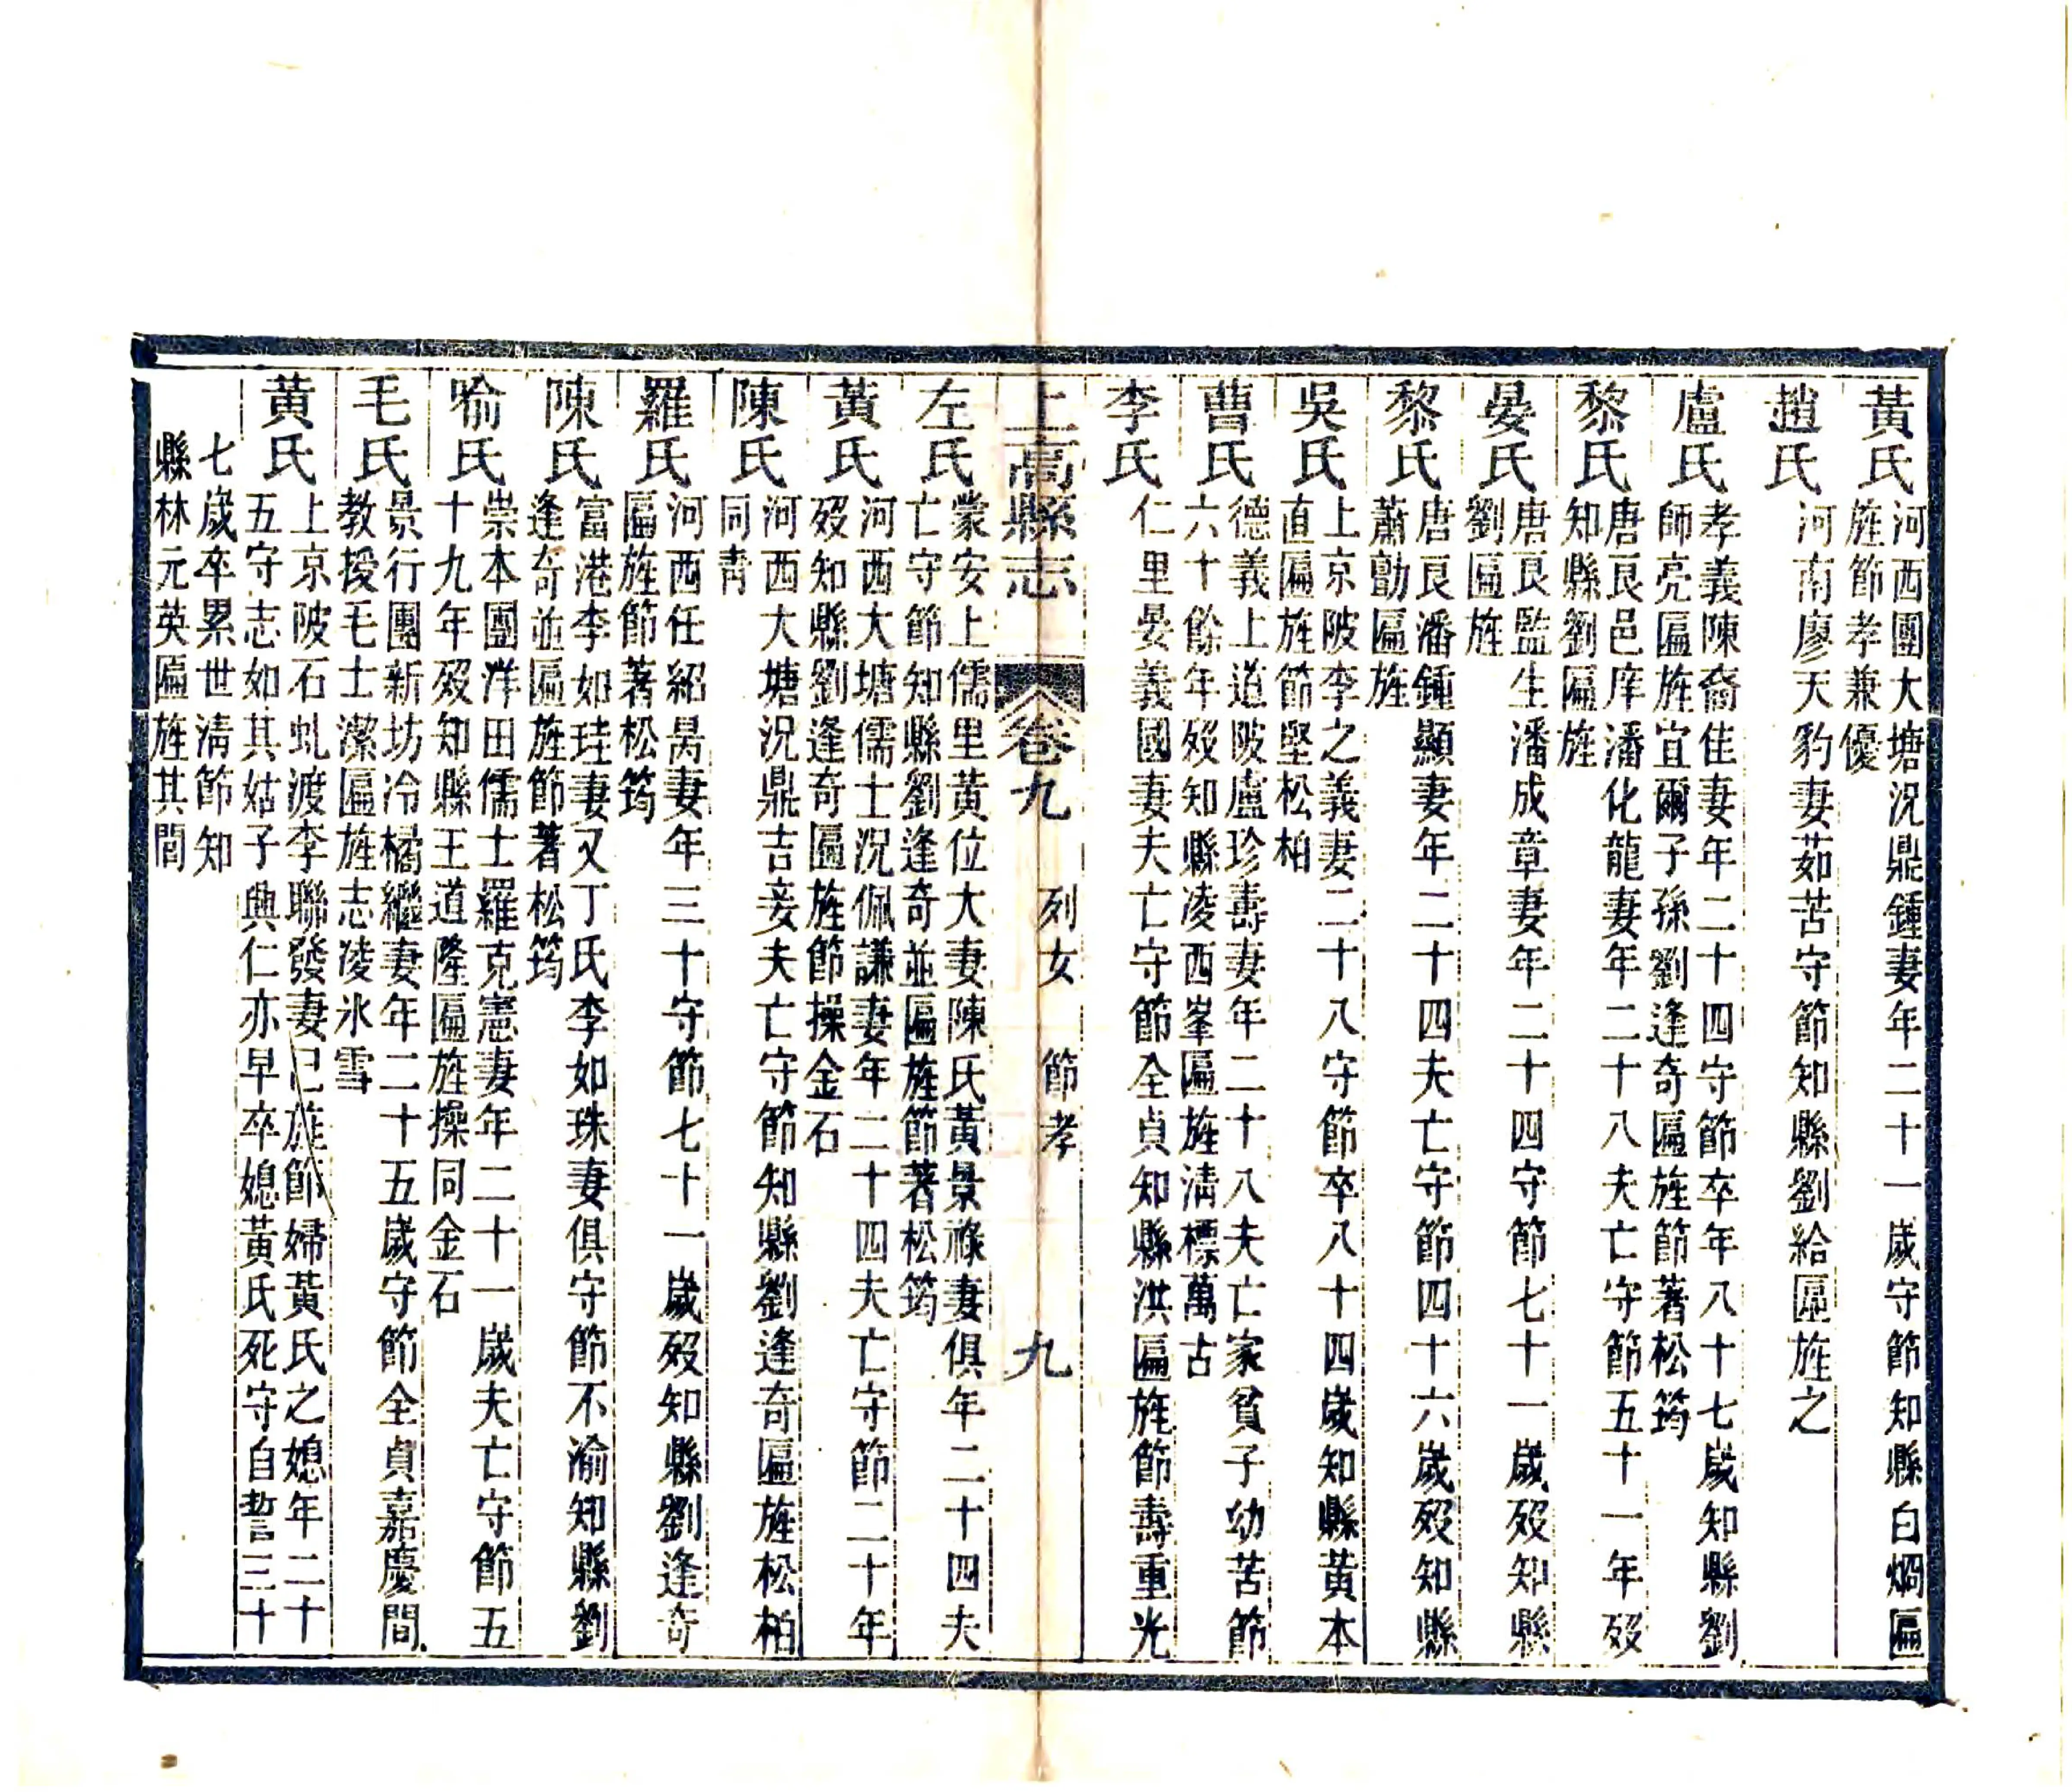 黃氏
河西團大塘況鼎鍾妻年二十一歲守節知縣白烱匾
旌節孝兼優
趙氏
河南廖天豹妻茹苦守節知縣劉給匾旌之
盧氏
孝義陳裔佳妻年二十四守節卒年八十七歲知縣劉
師亮匾旌宜爾子孫劉逢奇匾旌節著松筠
黎氏
唐良邑庠潘化龍妻年二十八夫亡守節五十一年歿
知縣劉匾旌
晏氏
唐良監生潘成章妻年二十四守節七十一歲歿知縣
劉匾旌
黎氏
唐良潘鍾顯妻年二十四夫亡守節四十六歲歿知縣
蕭勛匾旌
吳氏
上京陂李之義妻二十八守節卒八十四歲知縣黃本
直匾旌節堅松柏
曹氏
德義上道陂盧珍壽妻年二十八夫亡家貧子幼苦節
六十餘年歿知縣凌西峯匾旌清標萬古
李氏
仁里晏義國妻夫亡守節全貞知縣洪匾旌節壽重光
上高縣志 卷九 列女 節孝 九
左氏
蒙安上儒里黃位大妻陳氏黃景祿妻俱年二十四夫
亡守節知縣劉逢奇並匾旌節著松筠
黃氏
河西大塘儒士況佩謙妻年二十四夫亡守節二十年
歿知縣劉逢奇匾旌節操金石
陳氏
河西大塘況鼎吉妾夫亡守節知縣劉逢奇匾旌松柏
同青
羅氏
河西任紹昺妻年三十守節七十一歲歿知縣劉逢奇
匾旌節著松筠
陳氏
富港李如珪妻又丁氏李如珠妻俱守節不渝知縣劉
逢奇並匾旌節著松筠
喻氏
崇本團洋田儒士羅克憲妻年二十一歲夫亡守節五
十九年歿知縣王道隆匾旌操同金石
毛氏
景行團新坊冷橘繼妻年二十五歲守節全貞嘉慶間
教授毛士潔匾旌志凌氷雪
黃氏
上京陂石虬渡李聯發妻已旌節婦黃氏之媳年二十
五守志如其姑子興仁亦早卒媳黃氏死守自誓三十
七歲卒累世清節知
縣林元英匾旌其閭